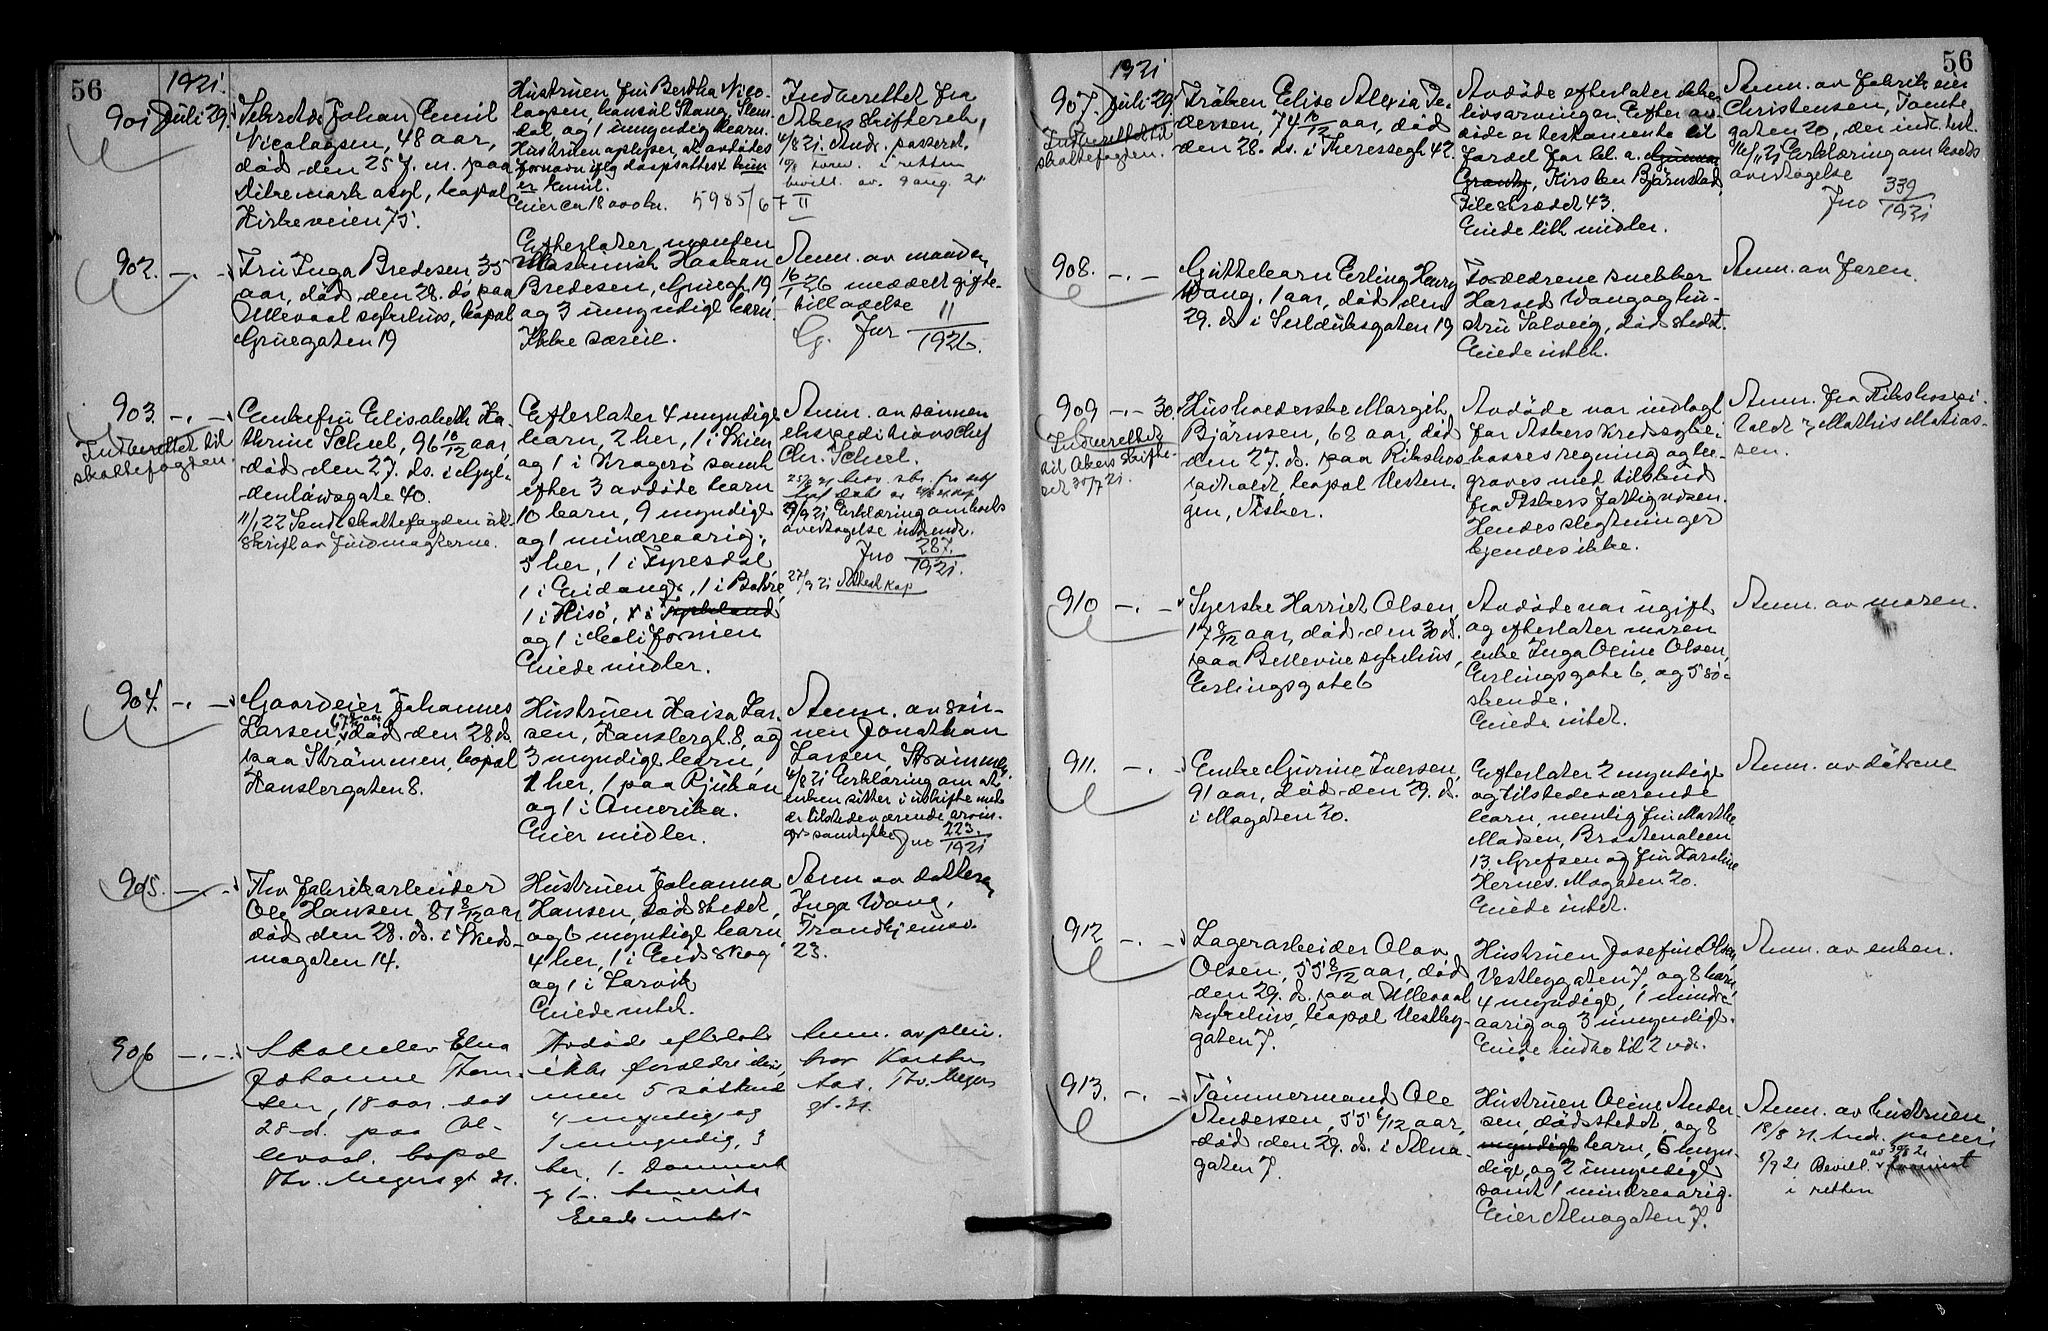 56
1921.
901 Juli 29.
Johan Emil
Nicolaysen, 48 aar,
død den 25 f. m. paa
Dikemark asyl, bopæl
Kirkeveien 75.
Hustruen fru Bertha Nico-
laysen,
og 1 umyndig barn.
Hustruen oplyser, at avdødes
fornavn iflg daapsattest kun
er Emil.
Eier ca 18 000 kr. 5985/67 II
Indberettet fra
Akers skifteret,
4/8 21. Andr. passeret.
i retten
bevill. av 9 aug. 21
902. -.-
Fru Inga Bredesen 35
aar, død den 28. ds. paa
Ullevaal sykehus, bopæl
Gruegaten 19
Efterlater manden
Maskinist Haakon
Bredesen, Gruegt. 19,
og 3 umyndige barn.
Ikke særeie.
Anm. av manden
meddelt gifte-
tilladelse
Jnr 11/1926.
903. -.-
Indberettet til
skattefogden.
Enkefru Elisabeth Ka-
thrine Scheel, 96 10/12 aar,
død den 27. ds. i Gyl-
denløvsgate 40.
11/1 22 Sendt skattefogden ut-
skrift av
Efterlater 4 myndige
barn, 2 her, 1 i Skien
og 1 i Kragerø samt
efter 3 avdøde barn
10 barn, 9 myndige
og 1 mindreaarig,
5 her, 1 i Fyresdal,
1 i Eidanger, 1 i
1 i Hisø,
og 1 i Californien
Eiede midler.
Anm. av sønnen
ekspeditionschef
Chr. Scheel.
Erklæring om boets
overtagelse
Jno 287/1921.
Attest kop
904. -.-
Gaardeier Johannes
Larsen, død den 28 ds.
paa Strømmen, bopæl
Kanslergaten 8.
Hustruen Kaisa Lar-
sen, Kanslergt. 8, og
3 myndige barn,
1 her, 1 paa Rjukan
og 1 i Amerika.
Eier midler.
Anm. av søn-
nen Jonathan
Larsen, Strømmen.
4/8 21 Erklæring om at
enken sitter i uskifte med
de tilstedeværende arvin-
gers samtykke Jno 223/1921
905. -.-
Fhv. fabrikarbeider
Ole Hansen, 81 8/12 aar
død den 28. ds. i Skeds-
mogaten 14.
Hustruen Johanna
Hansen, dødstedet,
og 6 myndige barn,
4 her, 1 i Eidskog
og 1 i Larvik
Eiede intet.
Anm av datteren
Inga Wang,
Trondhjemsv.
23.
906 -.-
Elna
Johanne Thom-
sen, 18 aar. død
28 d. paa Ul-
levaal, bopæl
Thv. Meyers gt. 21.
Avdøde efterlot
ikke foreldre ilive,
men 5 søskend
4 myndig og
1 umyndig, 3
her, 1 i Danmark
og 1 i Amerika
Eiede intet
Anm. av pleie-
bror Karsten
Aas, Thv. Meyers
gt. 21.
56
1921
907. Juli 29.
Indberettet til
skattefogden.
Frøken Elise Alexia Pe-
dersen, 74 10/12 aar, død
den 28. ds. i Theresesgt 42.
Avdøde efterlater ikke
livsarvinger. Efter av-
døde er testamente til
fordel for bl. a. Gunnar
Krantz, Kirsten Bjørnstad,
Pilestrædet 43.
Eiede litt midler.
Anm. av fabrikeier
Christensen, Tomte-
gaten 20, der indl. test.
Erklæring om boets
overtagelse
Jno 339/1921
908. -.-
Guttebarn Erling Henry
Wang, 1 aar, død den
29. ds. i Seilduksgaten 19
Forældrene snekker
Harald Wang og hu-
stru Solveig, dødstedet.
Eiede intet.
Anm. av faren.
909 -.- 30.
Indberettet
til Akers skifte-
ret 30/7 21.
Husholderske Margit
Bjørnsen, 68 aar, død
den 27. ds. paa Rikshos-
pitalet bopæl Vesten-
gen, Asker.
Avdøde var indlagt
for Askers kredssyke-
kasses regning og be-
graves med tilstand
fra Askers fattigvæsen.
Hendes slegtninger
kjendes ikke.
Anm. fra Rikshospi-
talet v/ Mathis Mathias-
sen.
910 -.-
Syerske Harriet Olsen
17 8/12 aar, død den 30 d.
paa Bellevue sykehus,
Erlingsgate 6
Avdøde var ugift
og efterlater moren
enke Inga Oline Olsen,
Erlingsgate 6, og 5 sø-
skende.
Eiede intet.
Anm. av moren.
911. -.-
Enke Gurine Iversen,
91 aar, død den 29. d.
i Mogaten 20.
Efterlater 2 myndige
og tilstedeværende
barn, nemlig fru Marthe
Madsen, Braatenalleen
13 Grefsen og fru Karoline
Hernes. Mogaten 20.
Eiede intet.
Anm. av døtrene
912 -.-
Lagerarbeider Olav
Olsen, 55 8/12 aar, død
den 29. ds. paa Ullevaal
sykehus, bopæl Vestby-
gaten 7.
Hustruen Josefine Olsen
Vestbygaten 7, og 8 barn,
4 myndige, 1 mindre-
aarig og 3 umyndige.
Eiede indbo til 2 vær.
Anm. av enken.
913. -.-
Tømmermand Ole
Andersen, 55 6/12 aar,
død den 29. ds. i Alna-
gaten 7.
Hustruen Oline Ander-
sen, dødstedet, og 8
myndige barn, 5 myn-
dige, og 2 umyndige
samt 1 mindreaarig.
Eier Alnagaten 7.
Anm. av hustruen
18/8 21. Andr. passeret
5/9 21 Bevill. av 30/8 21 fremvist
i retten